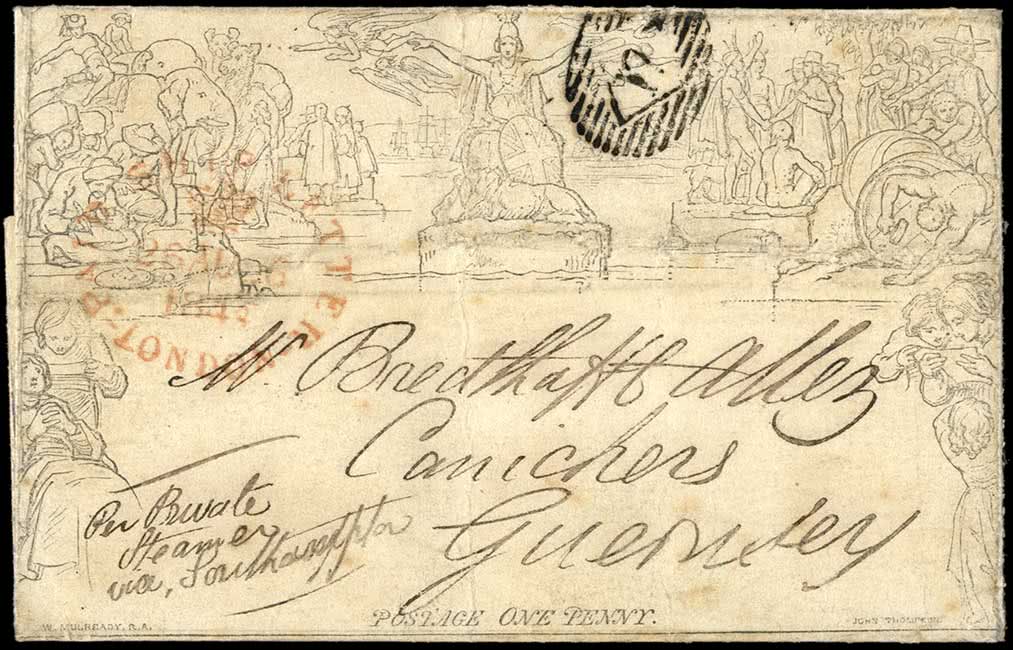 Mr Bredthafft Allez
Canichers
Guernsey
Per Private
Steamer
via, Southampton
POSTAGE ONE PENNY.
W. MULREADY. R.A.
JOHN THOMPSON
SHIP LETTER
LONDON